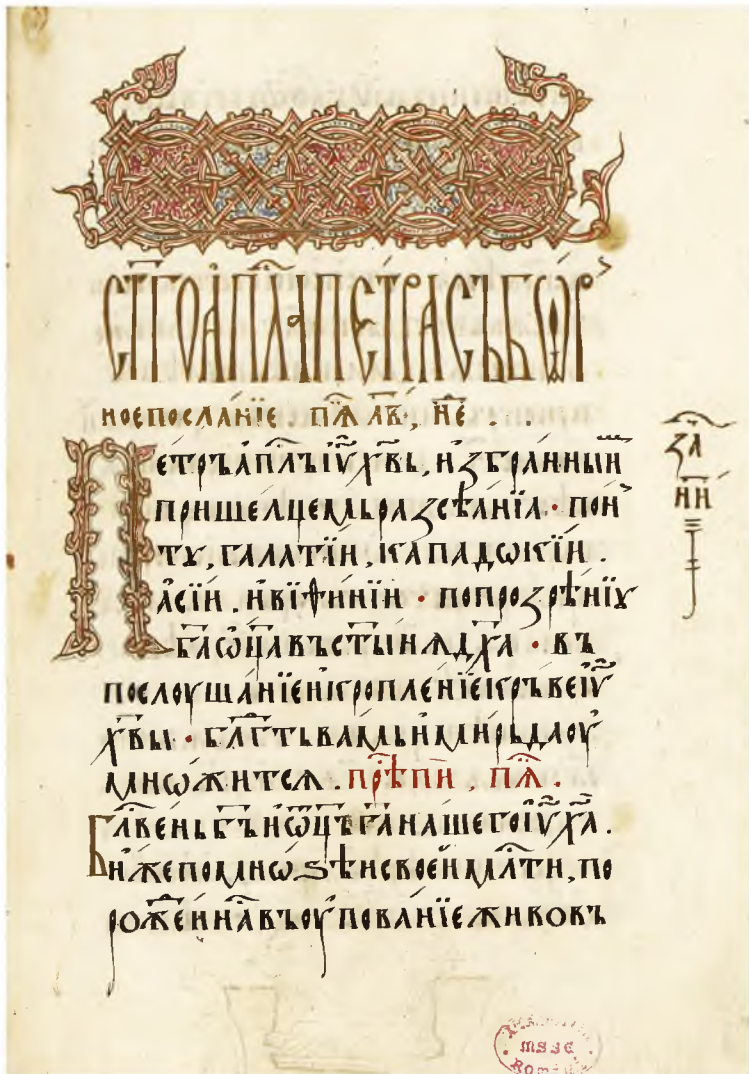 СТ҃ГОАП҃ЛАПЕТРАСЪБѠР
НОЕПОСЛАНЇЕ П҃Ѧ А҃В, Н҃Е . .
ПЕТРЪАП҃ЛЪІУ҃Х҃ВЬ, ИЗБРАННЫИ
ПРИШЕЛЦЕМЬРАЗСѢАНЇА · ПОН
ТУ, ГАЛАТЇИ, КАПАДѠКЇИ .
АСЇИ, ИВЇѲИНЇИ · ПОПРОЗРѢНЇУ
Б҃ГАѠ҃ЦАВЪСТ҃ЫНѦД҃ХА · ВЪ
ПОСЛОУШАНЇЕИКРОПЛЕНЇЕКРЪВЕІУ҃
Х҃ВЫ · БЛ҃ГТЬВАМЬИМИРЬДАОУ
МНѠЖИТСѦ . ПРѢПИ, П҃Ѧ .
БЛ҃ВЕНЬБ҃ЪИѠ҃ЦЪГ҃АНАШЕГОІУ҃Х҃А .
ИЖЕПОМНѠЅѢИСВОЕИМЛ҃ТИ, ПО
РОЖЕИНАВЪОУПОВАНЇЕЖИВОВЪ
З҃А
НИ
MSSE